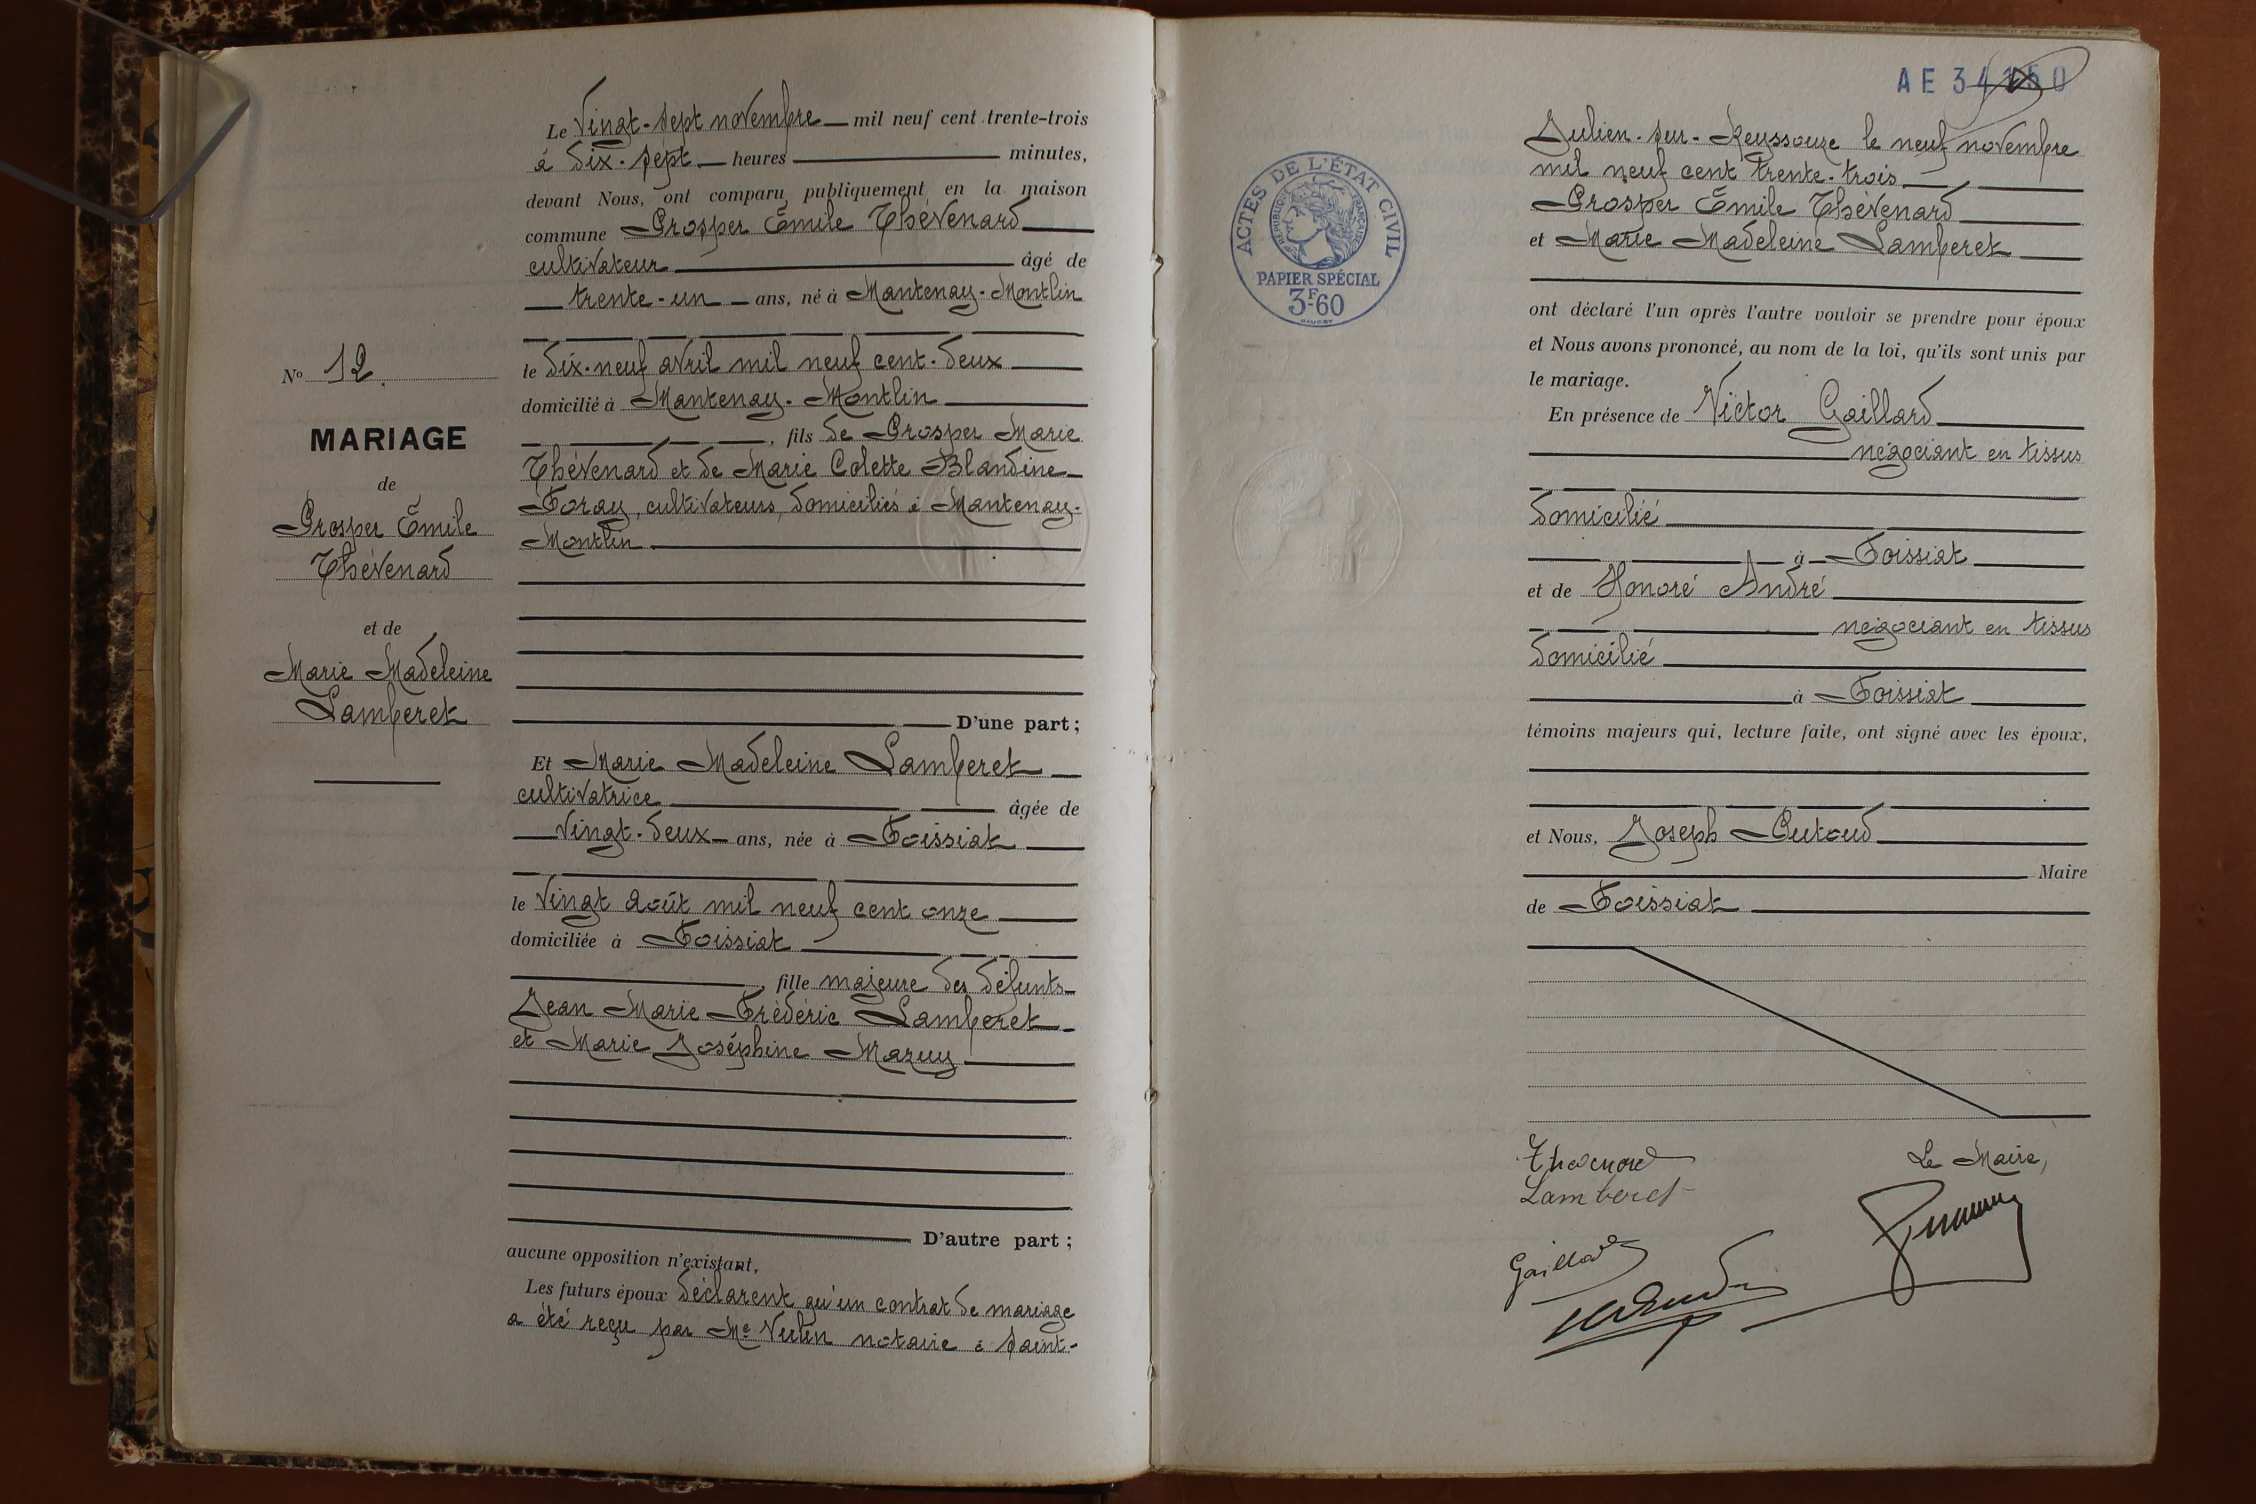 Le Vingt-sept novembre mil neuf cent trente-trois
à dix-sept heures minutes,
devant Nous, ont comparu publiquement en la maison
commune Prosper Émile Thévenard
cultivateur âgé de
trente-un ans, né à Mantenay-Montlin
le dix-neuf avril mil neuf cent-deux
domicilié à Mantenay-Montlin
, fils de Prosper Marie
Thévenard et de Marie Colette Blandine
Foray, cultivateurs, domiciliés à Mantenay-
Montlin
D'une part;
Et Marie Madeleine Lamberet
cultivatrice âgée de
vingt-deux ans, née à Foissiat
le vingt août mil neuf cent onze
domiciliée à Foissiat
, fille majeure des défunts
Jean Marie Frédéric Lamberet
et Marie Joséphine Mazuy
D'autre part;
aucune opposition n'existant,
Les futurs époux déclarent qu'un contrat de mariage
a été reçu par Me notaire à Saint-
No 12.
MARIAGE
de
Prosper Émile
Thévenard
et de
Marie Madeleine
Lamberet
AE 34
ACTES DE L'ÉTAT CIVIL
RÉPUBLIQUE FRANÇAISE
PAPIER SPÉCIAL
3F-60
Julien-sur-Reyssouze le neuf novembre
mil neuf cent trente-trois
Prosper Émile Thévenard
et Marie Madeleine Lamberet
ont déclaré l'un après l'autre vouloir se prendre pour époux
et Nous avons prononcé, au nom de la loi, qu'ils sont unis par
le mariage.
En présence de Victor Gaillard
négociant en tissus
domicilié
à Foissiat
et de Honoré André
négociant en tissus
domicilié
à Foissiat
témoins majeurs qui, lecture faite, ont signé avec les époux,
et Nous, Joseph Putoud
Maire
de Foissiat
Thévenard
Lamberet
Gaillard
Le Maire,